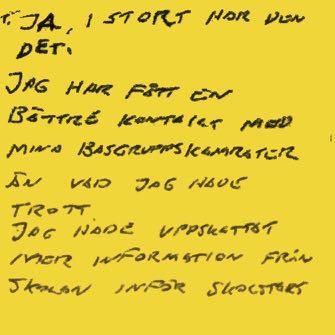 JA, I STORT HAR DEN
DET.
JAG HAR FÅTT EN
BÄTTRE KONTAKT MED
MINA BASGRUPPSKAMRATER
ÄN VAD JAG HADE
TROTT.
JAG HADE UPPSKATTAT
MER INFORMATION FRÅN
SKOLAN INFÖR SKOLSTART